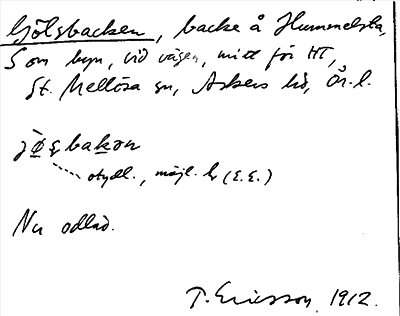 Gölsbacken, backe å Hummelsta,
S om byn, vid vägen, mitt för HT,
St. Mellösa sn, Askers hd, Ör. l.
otydl., möjl. l (E.E.)
Nu odlad.
T. Ericsson 1912.